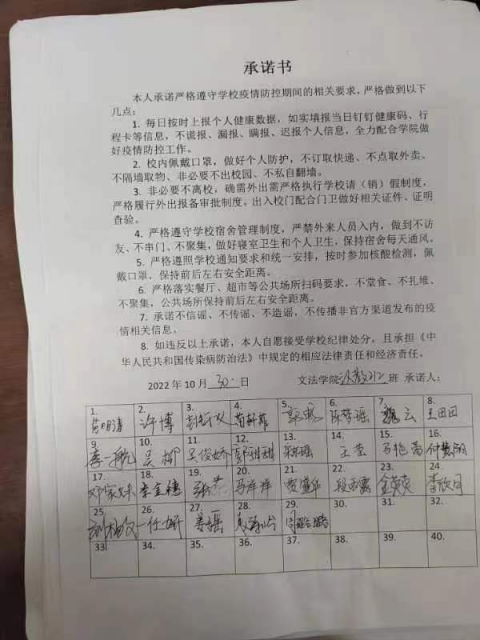 承诺书
本人承诺严格遵守学校疫情防控期间的相关要求，严格做到以下
几点：
1. 每日按时上报个人健康数据，如实填报当日钉钉健康码、行
程卡等信息，不谎报、漏报、瞒报、迟报个人信息，全力配合学院做
好疫情防控工作。
2. 校内佩戴口罩，做好个人防护，不订取快递、不点取外卖、
不隔墙取物、非必要不出校园、不私自翻墙。
3. 非必要不离校，确需外出需严格执行学校请（销）假制度，
严格履行外出报备审批制度，出入校门配合门卫做好相关证件、证明
查验。
4. 严格遵守学校宿舍管理制度，严禁外来人员入内，做到不访
友、不串门、不聚集，做好寝室卫生和个人卫生，保持宿舍每天通风。
5. 严格遵照学校通知要求和统一安排，按时参加核酸检测，佩
戴口罩、保持前后左右安全距离。
6. 严格落实餐厅、超市等公共场所扫码要求，不堂食、不扎堆、
不聚集，公共场所保持前后左右安全距离。
7. 承诺不信谣、不传谣、不造谣，不传播非官方渠道发布的疫
情相关信息。
8. 如违反以上承诺，本人自愿接受学校纪律处分，且承担《中
华人民共和国传染病防治法》中规定的相应法律责任和经济责任。
2022 年 10 月 30 日 文法学院 班 承诺人：
1. 2. 3. 4. 5. 6. 7. 8.
许博 魏云 王田田
9. 10. 11. 12. 13. 14. 15. 16.
王俊娇
17. 18. 19. 20. 21. 22. 23. 24.
李金穗 马萍萍
25. 26. 27. 28. 29. 30. 31. 32.
任妍
33. 34. 35. 36. 37. 38. 39. 40.